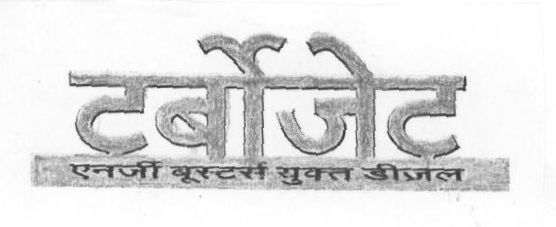 टर्बोजेट
एनर्जी बूस्टर्स युक्त डीज़ल